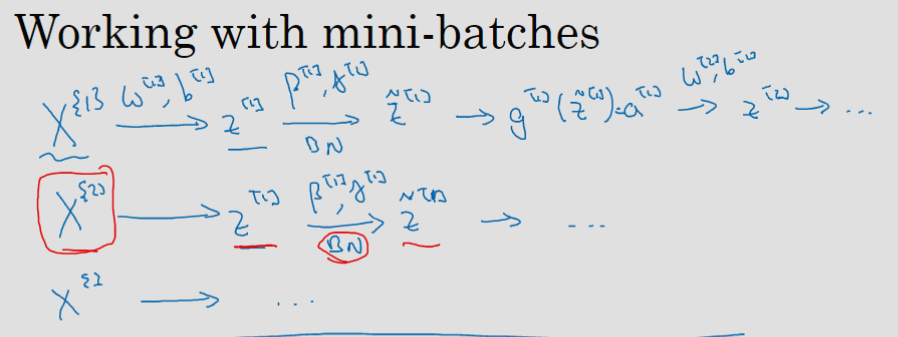 Working with mini-batches
X^{1} W^[1], b^[1] → z^[1] β^[1], γ^[1] → BN z̃^[1] → g^[1](z̃^[1]) = a^[1] W^[2], b^[2] → z^[2] → ...
X^{2} → z^[1] β^[1], γ^[1] → BN z̃^[1] → ...
X^{} → ...